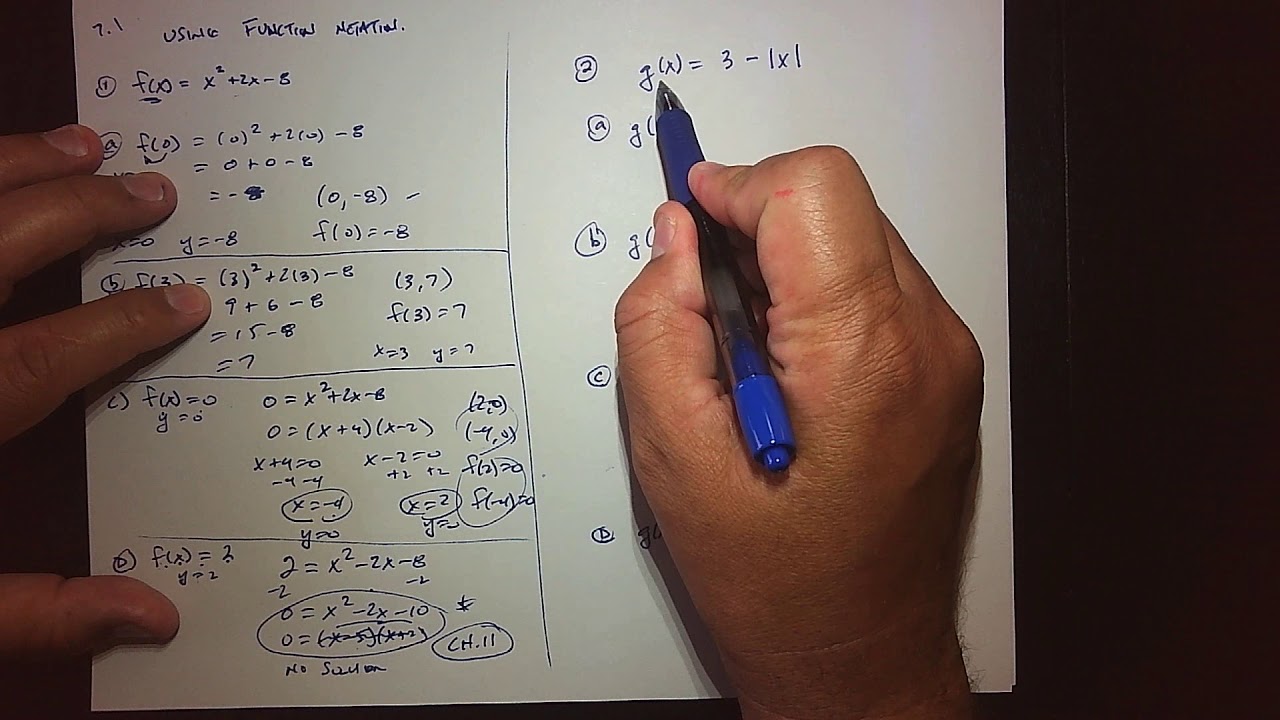 7.1 USING FUNCTION NOTATION.
① f(x) = x² + 2x - 8
ⓐ f(0) = (0)² + 2(0) - 8
= 0 + 0 - 8
= -8 (0, -8)
x=0 y=-8 f(0) = -8
ⓑ f(3) = (3)² + 2(3) - 8 (3, 7)
9 + 6 - 8 f(3) = 7
= 15 - 8
= 7 x=3 y=7
c) f(x) = 0 0 = x² + 2x - 8 (2, 0)
y = 0 0 = (x+4)(x-2) (-4, 0)
x+4=0 x-2=0 f(2)=0
-4 -4 +2 +2
x=-4 x=2 f(-4)=0
y=0 y=0
D) f(x) = 2 2 = x² - 2x - 8
y = 2 -2 -2
0 = x² - 2x - 10
0 = (x-5)(x+2) CH.11
No Solution
② g(x) = 3 - |x|
ⓐ g(
ⓑ g(
ⓒ
Ⓓ g(